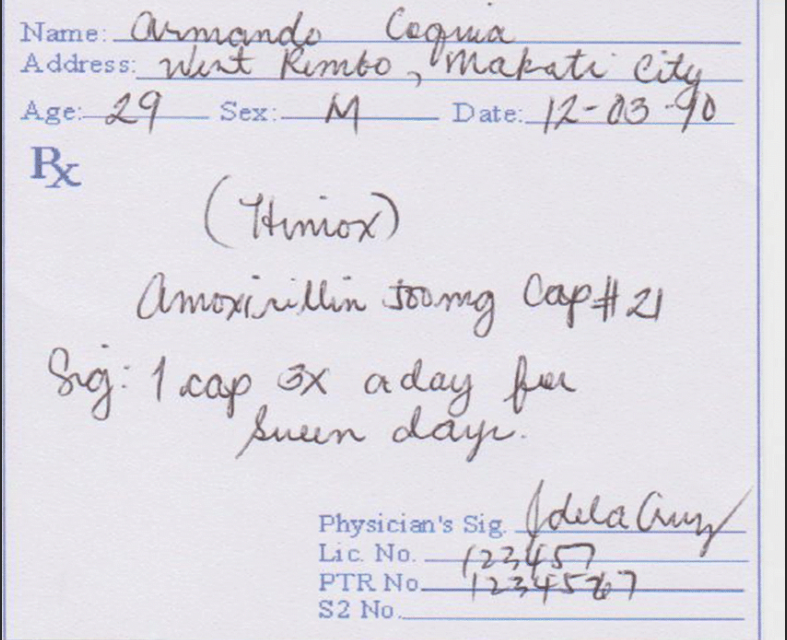 Name: Armando Coquia
Address: West Rembo, Makati City
Age: 29 Sex: M Date: 12-03-90
Rx
(Himox)
Amoxicillin 500mg Cap #21
Sig: 1 cap 3x a day for
seven days.
Physician's Sig. J dela Cruz
Lic. No. 123457
PTR No. 1234567
S2 No.